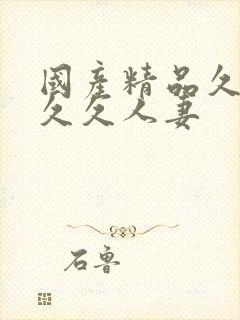 國產精品久
久久人妻
石魯